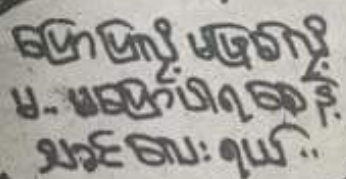 ပြောပြလို့ မဖြစ်လို့
မ.. မပြောပါရစေနဲ့
သခင်လေးရယ်..